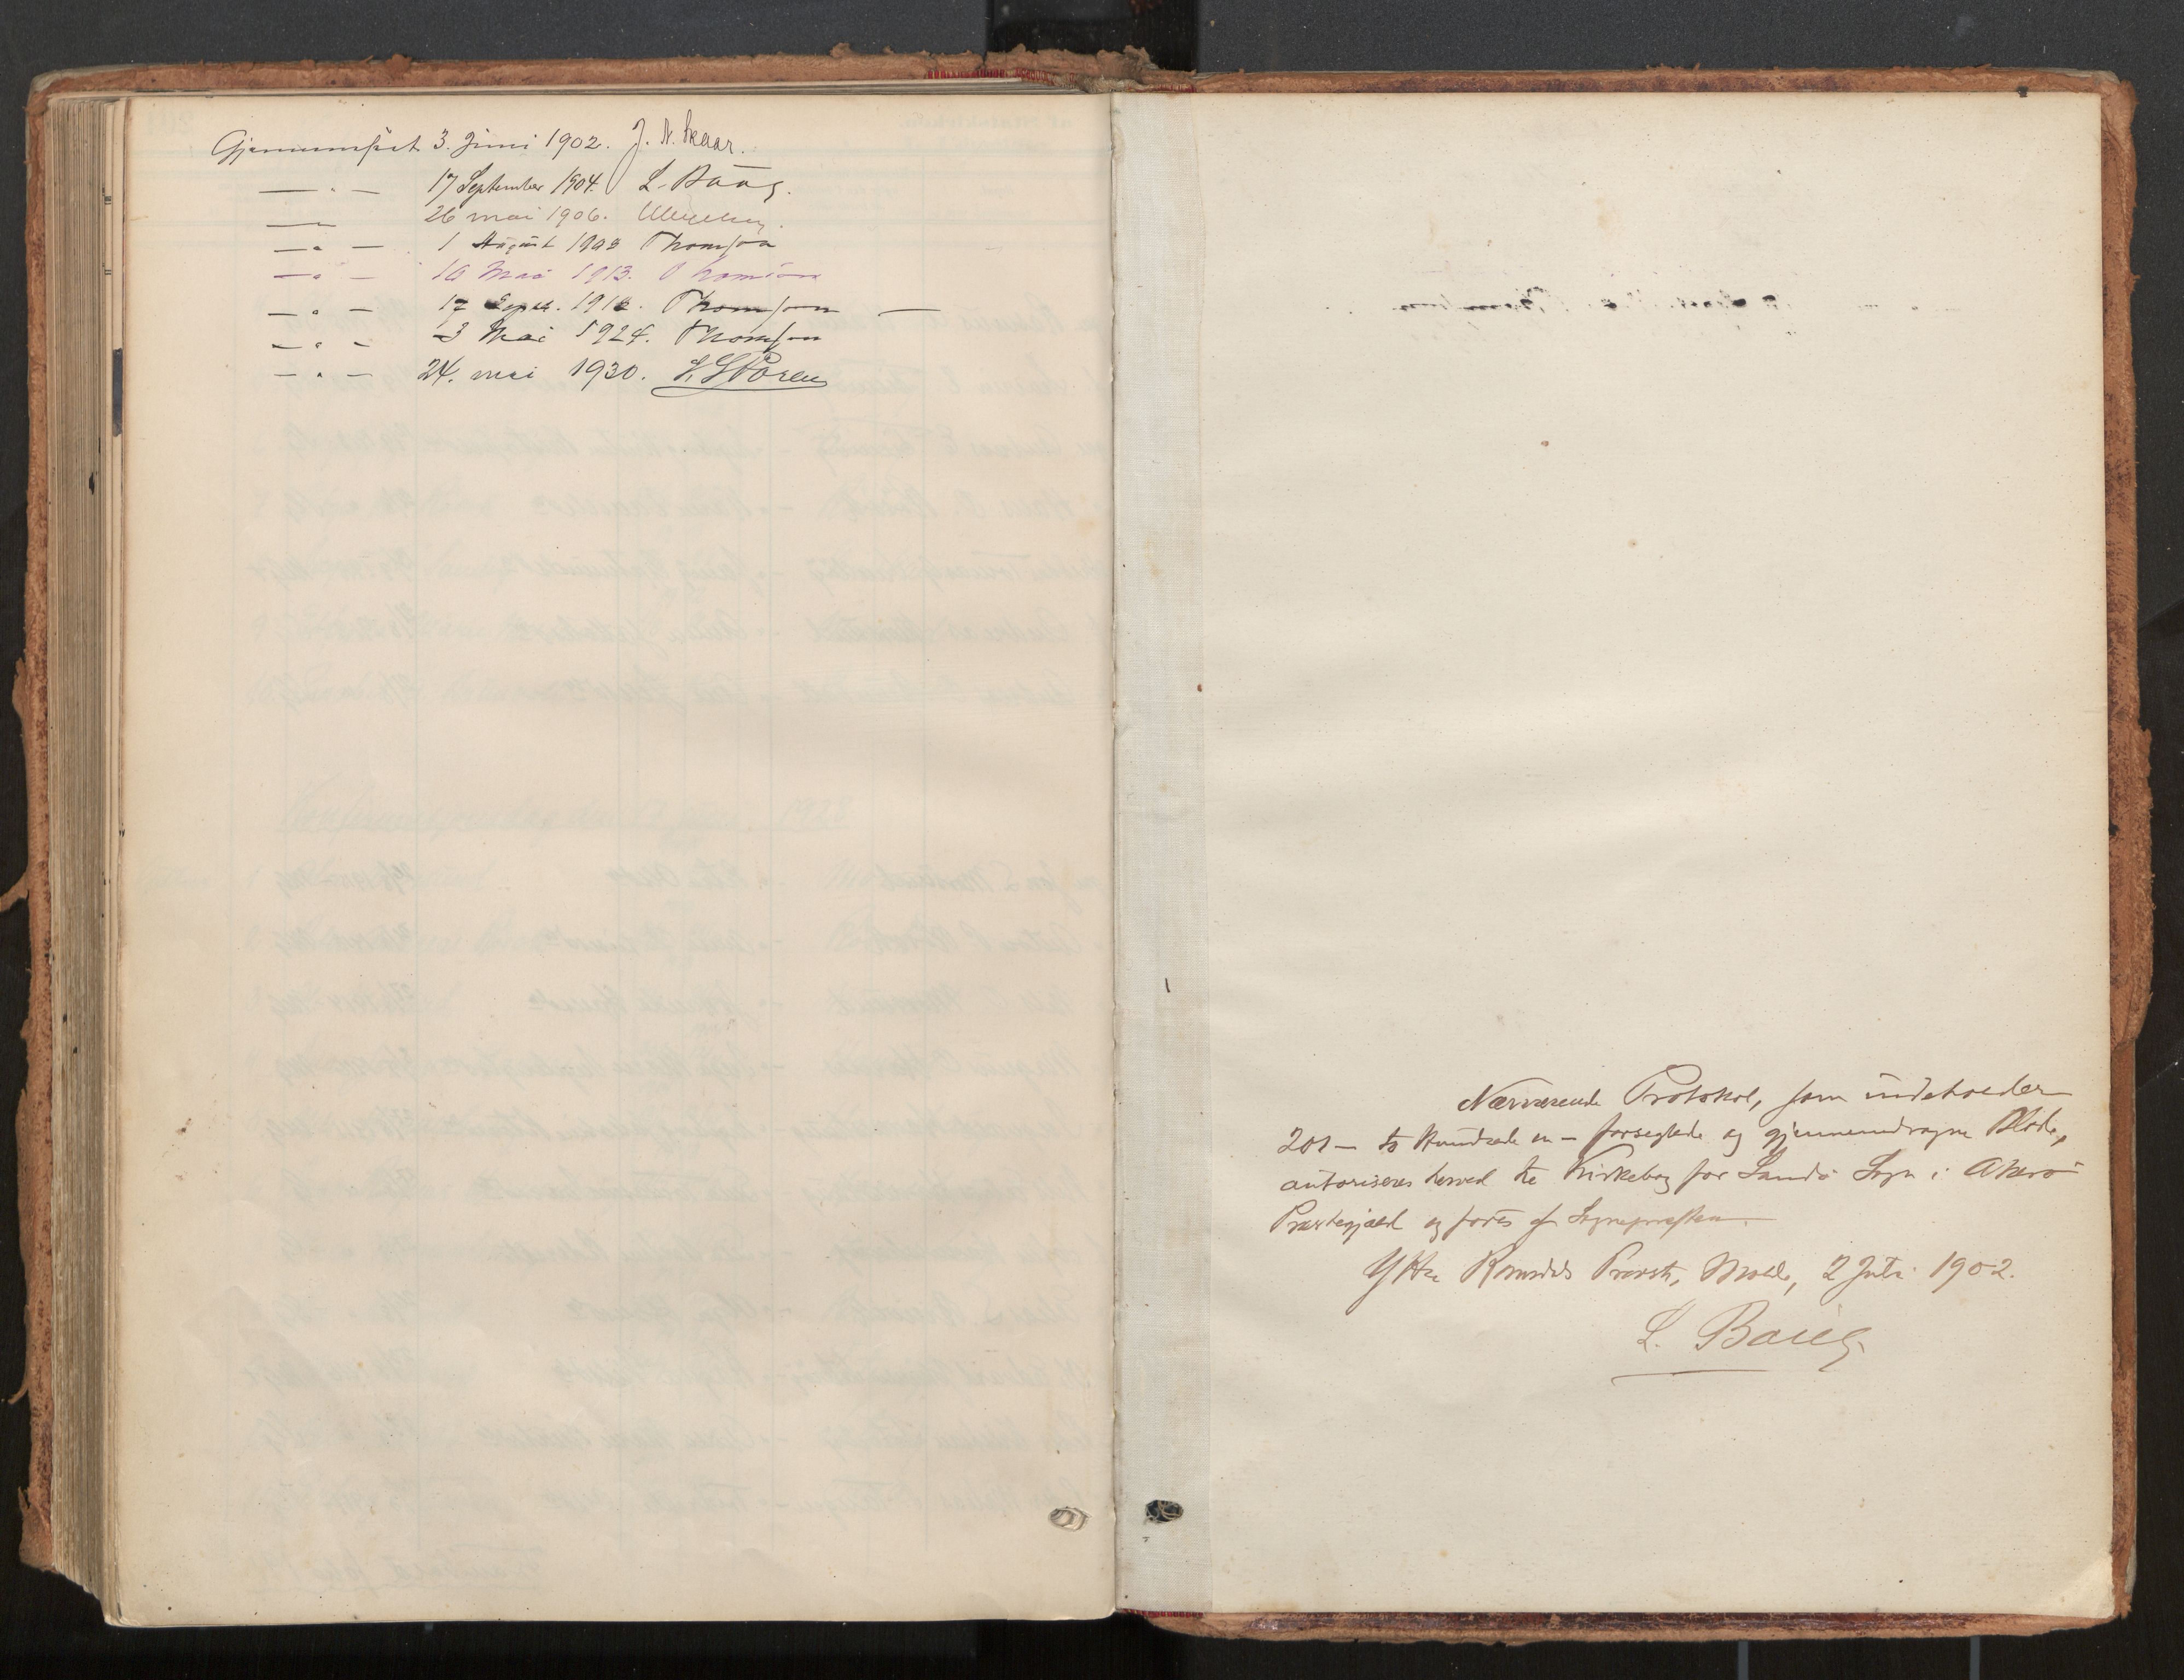 Gjennemseet 3. Juni 1902. J. N. Skaar.
— " — 17 September 1904. L. Baug.
— " — 26 mai 1906.
— " — 1 August 1908 Thomson
— " — 10 Mai 1913. Thomson
— " — 17 Septr. 1918. Thomson —
— " — 3 Mai 1924. Thomson
— " — 24. mai 1930. Støren
Nærværende Protokol, som indeholder
201 — to Hundrede en — forseglede og gjennemdragne Blade,
autoriseres herved til Kirkebog for Sandø Sogn i Akerø
Præstegjæld og føres af Sognepræsten.
Ytre Romsdals Provsti, Molde, 2 Juli 1902.
L. Baug